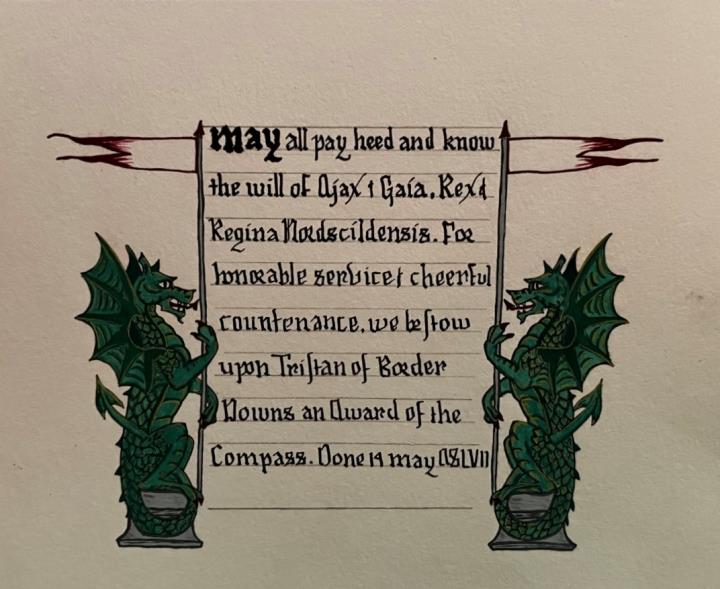 May all pay heed and know
the will of Ajax & Gaia, Rex &
Regina Nordscildensis. For
honorable service & cheerful
countenance, we bestow
upon Tristan of Border
Downs an Award of the
Compass. Done 14 may ASLVII